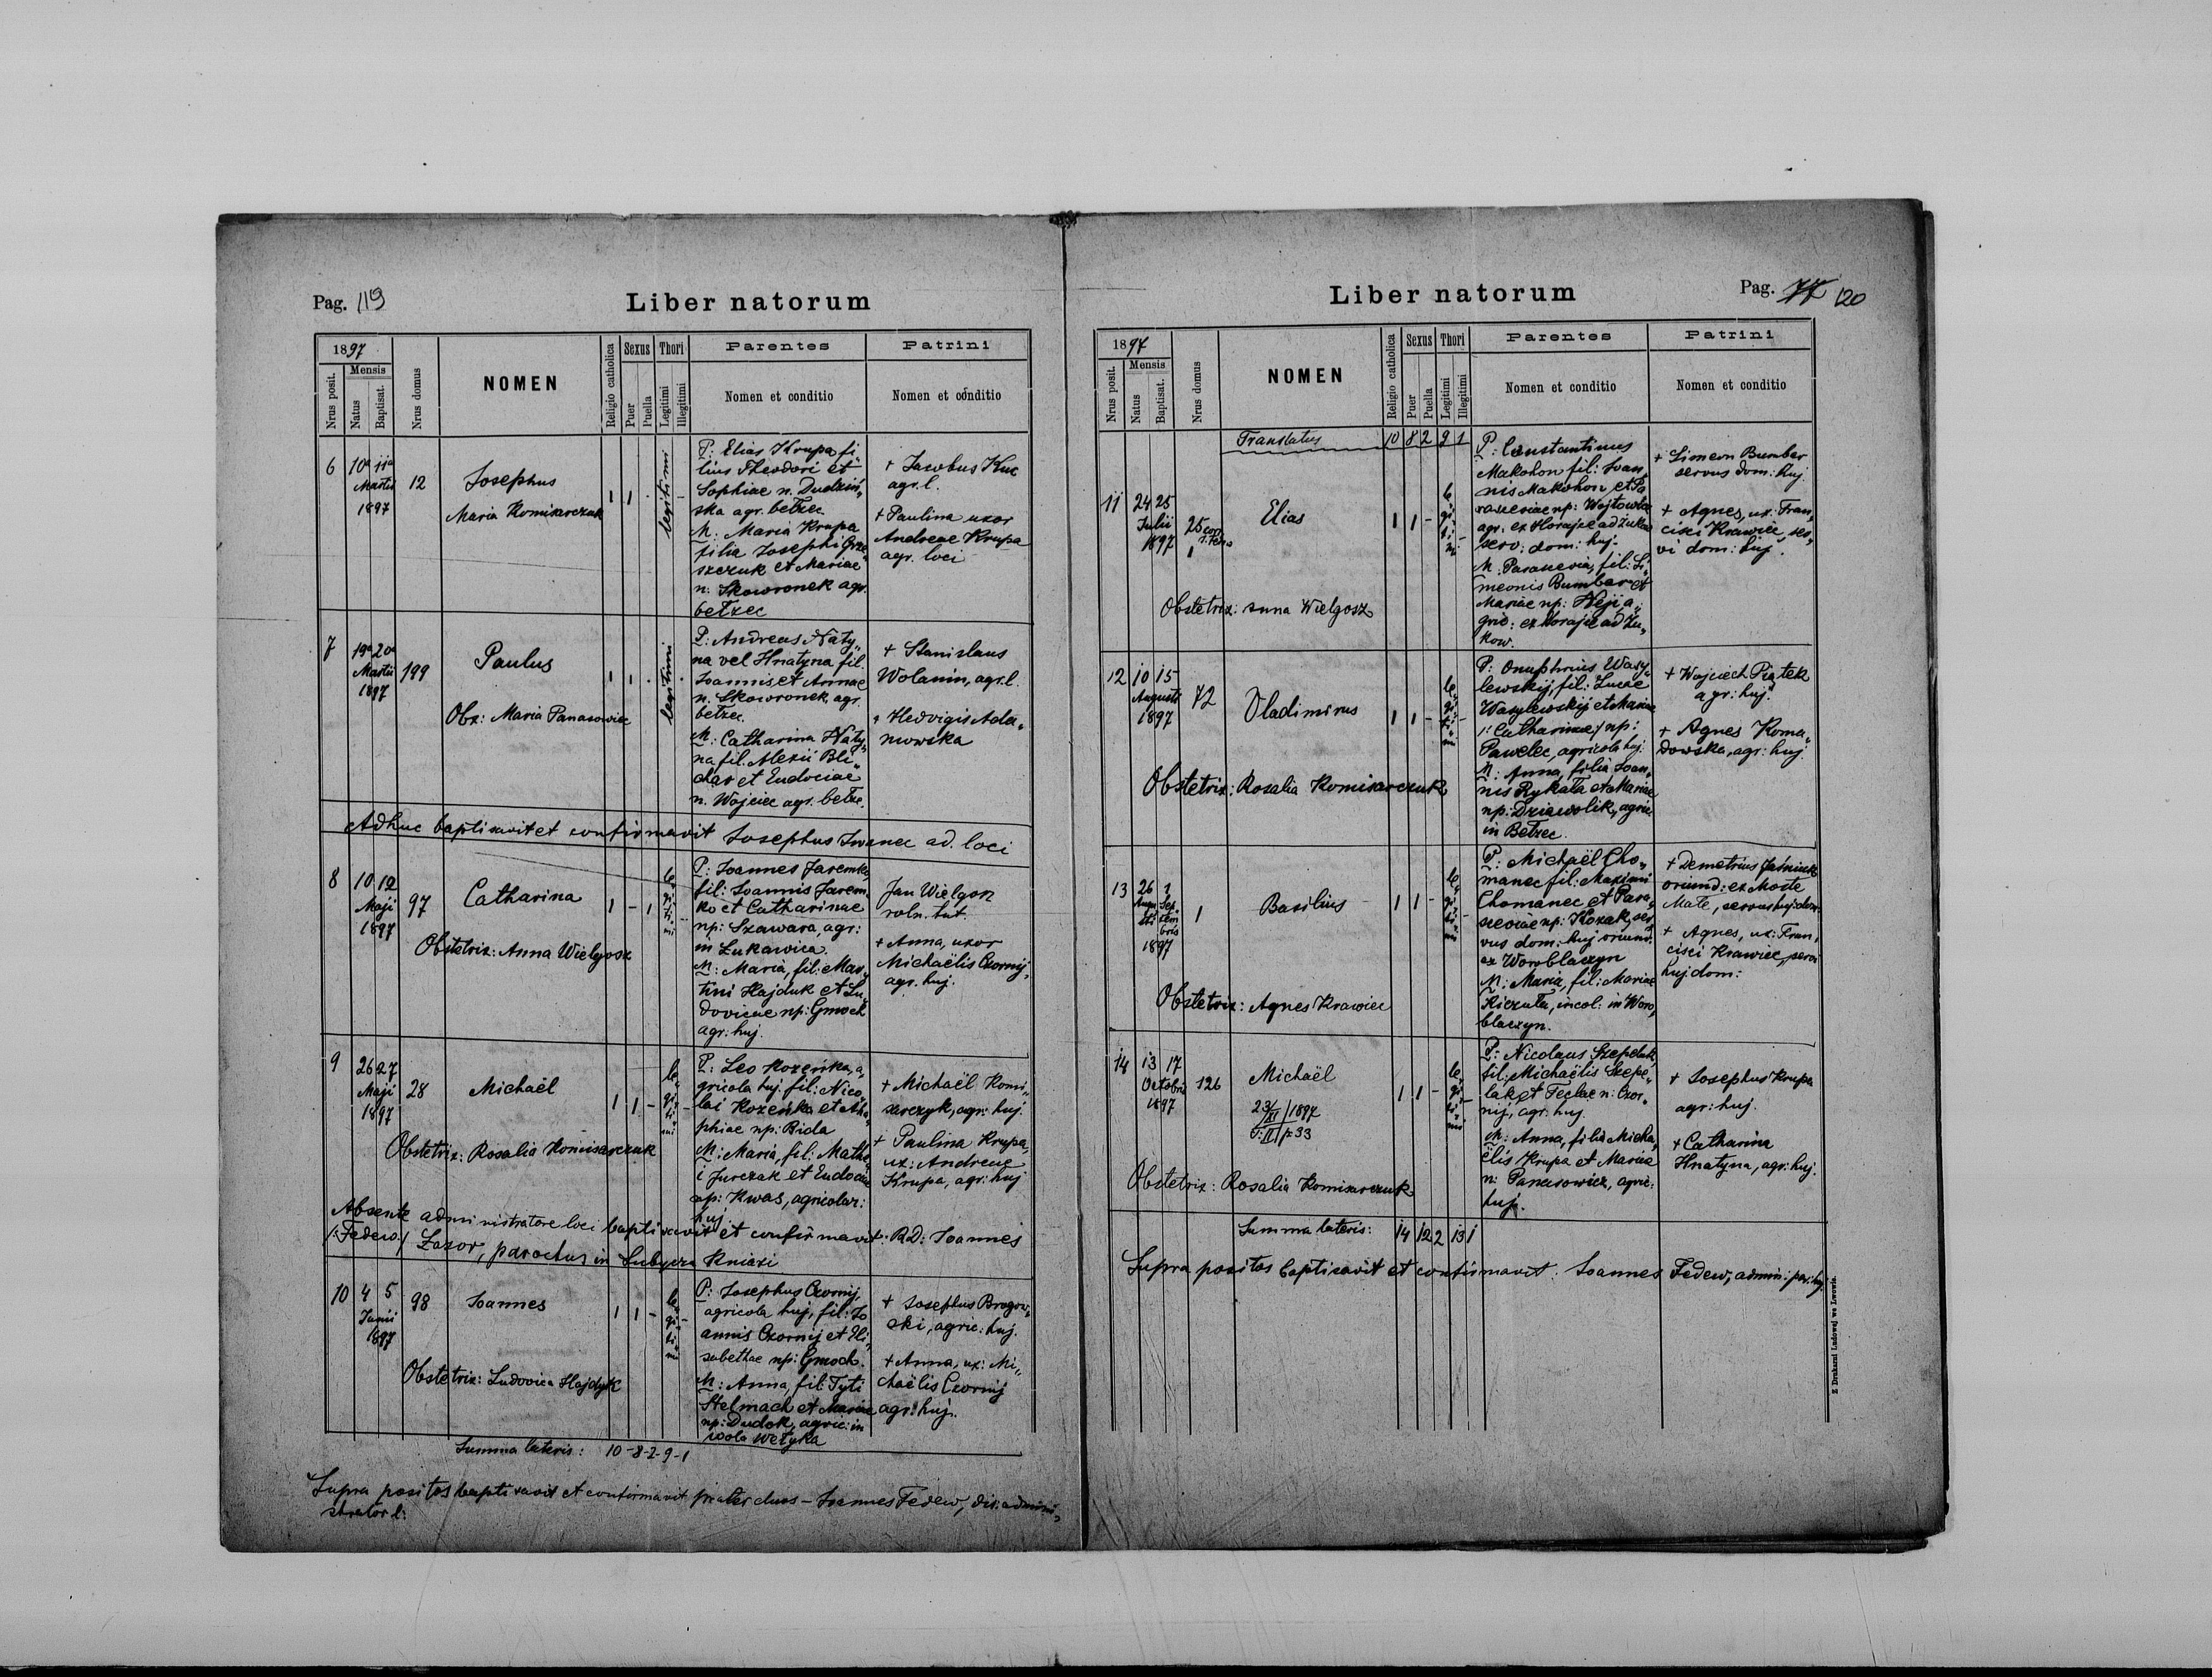 Pag. 119
Liber natorum
1897
Nrus posit.
Mensis
Natus
Baptisat.
Nrus domus
NOMEN
Religio catholica
Sexus
Puer
Puella
Thori
Legitimi
Illegitimi
Parentes
Nomen et conditio
Patrini
Nomen et conditio
6
10a 11a
Martii
1897
12
Josephus
Maria Komisarczuk
1 1 - legitimi -
P: Elias Krupa fi„
lius Theodori et
Sophiae n. Dudziń„
ska agr. bełzec
M: Maria Krupa
filia Josephi Grze„
szczuk et Mariae
n. Skowronek agr.
bełzec
+ Jacobus Kuc
agr. l.
+ Paulina uxor
Andreae Krupa
agr. loci
7
19a 20a
Martii
1897
199
Paulus
Obx: Maria Panasowiec
1 1 - legitimi -
P: Andreas Naty„
na vel Hnatyna fil.
Joannis et Annae
n. Skowronek, agr.
bełzec.
M: Catharina Naty„
na fil. Alexii Bli„
char et Eudociae
n. Wojciec agr. bełze.
+ Stanislaus
Wolanin, agr. l.
„ Hedvigis Ada„
mowska
Adhuc baptisavit et confirmavit Josephus Iwanec ad. loci
8
10 12
Maji
1897
97
Catharina
Obstetrix: Anna Wielgosz
1 - 1 le„gi„ti„mi -
P: Joannes Jaremko,
fil: Joannis Jarem„
ko et Catharinae
np: Szawara, agr:
in Łukawica
M: Maria, fil: Mar„
tini Hajduk et Lu„
dovicae np: Gmoch
agr: huj.
Jan Wielgosz
roln. tut.
+ Anna, uxor
Michaëlis Czornij,
agr. huj.
9
26 27
Maji
1897
28
Michaël
Obstetrix: Rosalia Komisarczuk
1 1 - le„gi„ti„mi -
P: Leo Kozeńka, a„
gricola huj. fil: Nico„
lai Kozeńka et
phiae np: Bida
M: Maria, fil: Mathe„
i Jurczak et Eudociae
np: Kwas, agricolar:
huj.
+ Michaël Komi„
sarczyk, agr: huj.
+ Paulina Krupa,
ux: Andreae
Krupa, agr: huj
Absente administratore loci baptisavit et confirmavit: RD: Joannes
/:Fedew:/ Łazor, parochus in Lubycza Kniazi
10
4 5
Junii
1897
98
Joannes
Obstetrix: Ludovica Hajdyk
1 1 - le„gi„ti„mi -
P: Josephus Czornij,
agricola huj, fil: Jo„
annis Czornij et Eli„
sabethae np: Gmoch.
M: Anna, fil: Tyti
Stelmach et Mariae
np: Dudek, agric: in
wola wełyka
+ Josephus Brogow„
ski, agric: huj.
+ Anna, ux: Mi„
chaëlis Czornij
agr: huj.
Summa lateris: 10-8-2-9-1
Supra positos baptisavit et confirmavit prater duos - Joannes Fedew, adminí„
strator l:
Liber natorum
Pag. 77 120
1897
Nrus posit.
Mensis
Natus
Baptisat.
Nrus domus
NOMEN
Religio catholica
Sexus
Puer
Puella
Thori
Legitimi
Illegitimi
Parentes
Nomen et conditio
Patrini
Nomen et conditio
Translatus 10 8 2 9 1
11
24 25
Julii
1897
25
1
Elias
Obstetrix: Anna Wielgosz
1 1 - le„gi„ti„mi -
P: Constantinus
Makohon fil: Joan„
nis Makohon et Pa„
rasceviae np: Wojtowicz
agr. ex Horajec ad Żukow
serv: dom: huj.
M: Parascevia, fil: Si„
meonis Bumbar et
Mariae np: Neji a„
gric: ex Horajec ad Żu„
kow.
+ Simeon Bumbar
servus dom: huj
+ Agnes, ux: Fran„
cisci Krawiec, ser„
vi dom: huj.
12
10 15
Augusti
1897
72
Vladimirus
Obstetrix: Rosalia Komisarczuk
1 1 - le„gi„ti„mi -
P: Onuphrius Wasy„
lewskij, fil: Lucae
Wasylewskij et Mariae
/:Catharinae:/ np:
Pawelec, agricola huj.
M: Anna, filia Joan„
nis Rykała et Mariae
np: Dziawolik, agric.
in Bełzec.
+ Wojciech Piątek
agr: huj.
+ Agnes Koma„
dowska, agr: huj.
13
26 1
Augusti Septembris
1897
1
Basilius
Obstetrix: Agnes Krawiec
1 1 - le„gi„ti„mi -
P: Michaël Cho„
manec fil: Maximi
Chomanec et Para„
sceviae np: Kozak, ser„
vus dom: huj oriund:
ex Woroblaczyn
M: Maria, fil: Mariae
Kiczuła, incol: in Woro„
blaczyn.
+ Demetrius Jaśniuk
oriund: ex Moste
Małe, servus huj: dom:
+ Agnes, ux: Fran„
cisci Krawiec, servi
huj dom:
14
13 17
Octobris
1897
126
Michaël
23/XI/1897
T: II/p 33
Obstetrix: Rosalia Komisarczuk
1 1 - le„gi„ti„mi -
P: Nicolaus Szepelak,
fil: Michaëlis Szepe„
lak et Teclae n: Czor„
nij, agr: huj.
M: Anna, filia Micha„
ëlis Krupa et Mariae
n: Panasowicz, agric:
huj.
+ Josephus Krupa
agr: huj.
+ Catharina
Hnatyna, agr: huj.
Summa lateris: 14 12 2 13 1
Supra positos baptisavit et confirmavit: Joannes Fedew, admin: par: huj.
Z Drukarni Ludowej we Lwowie.